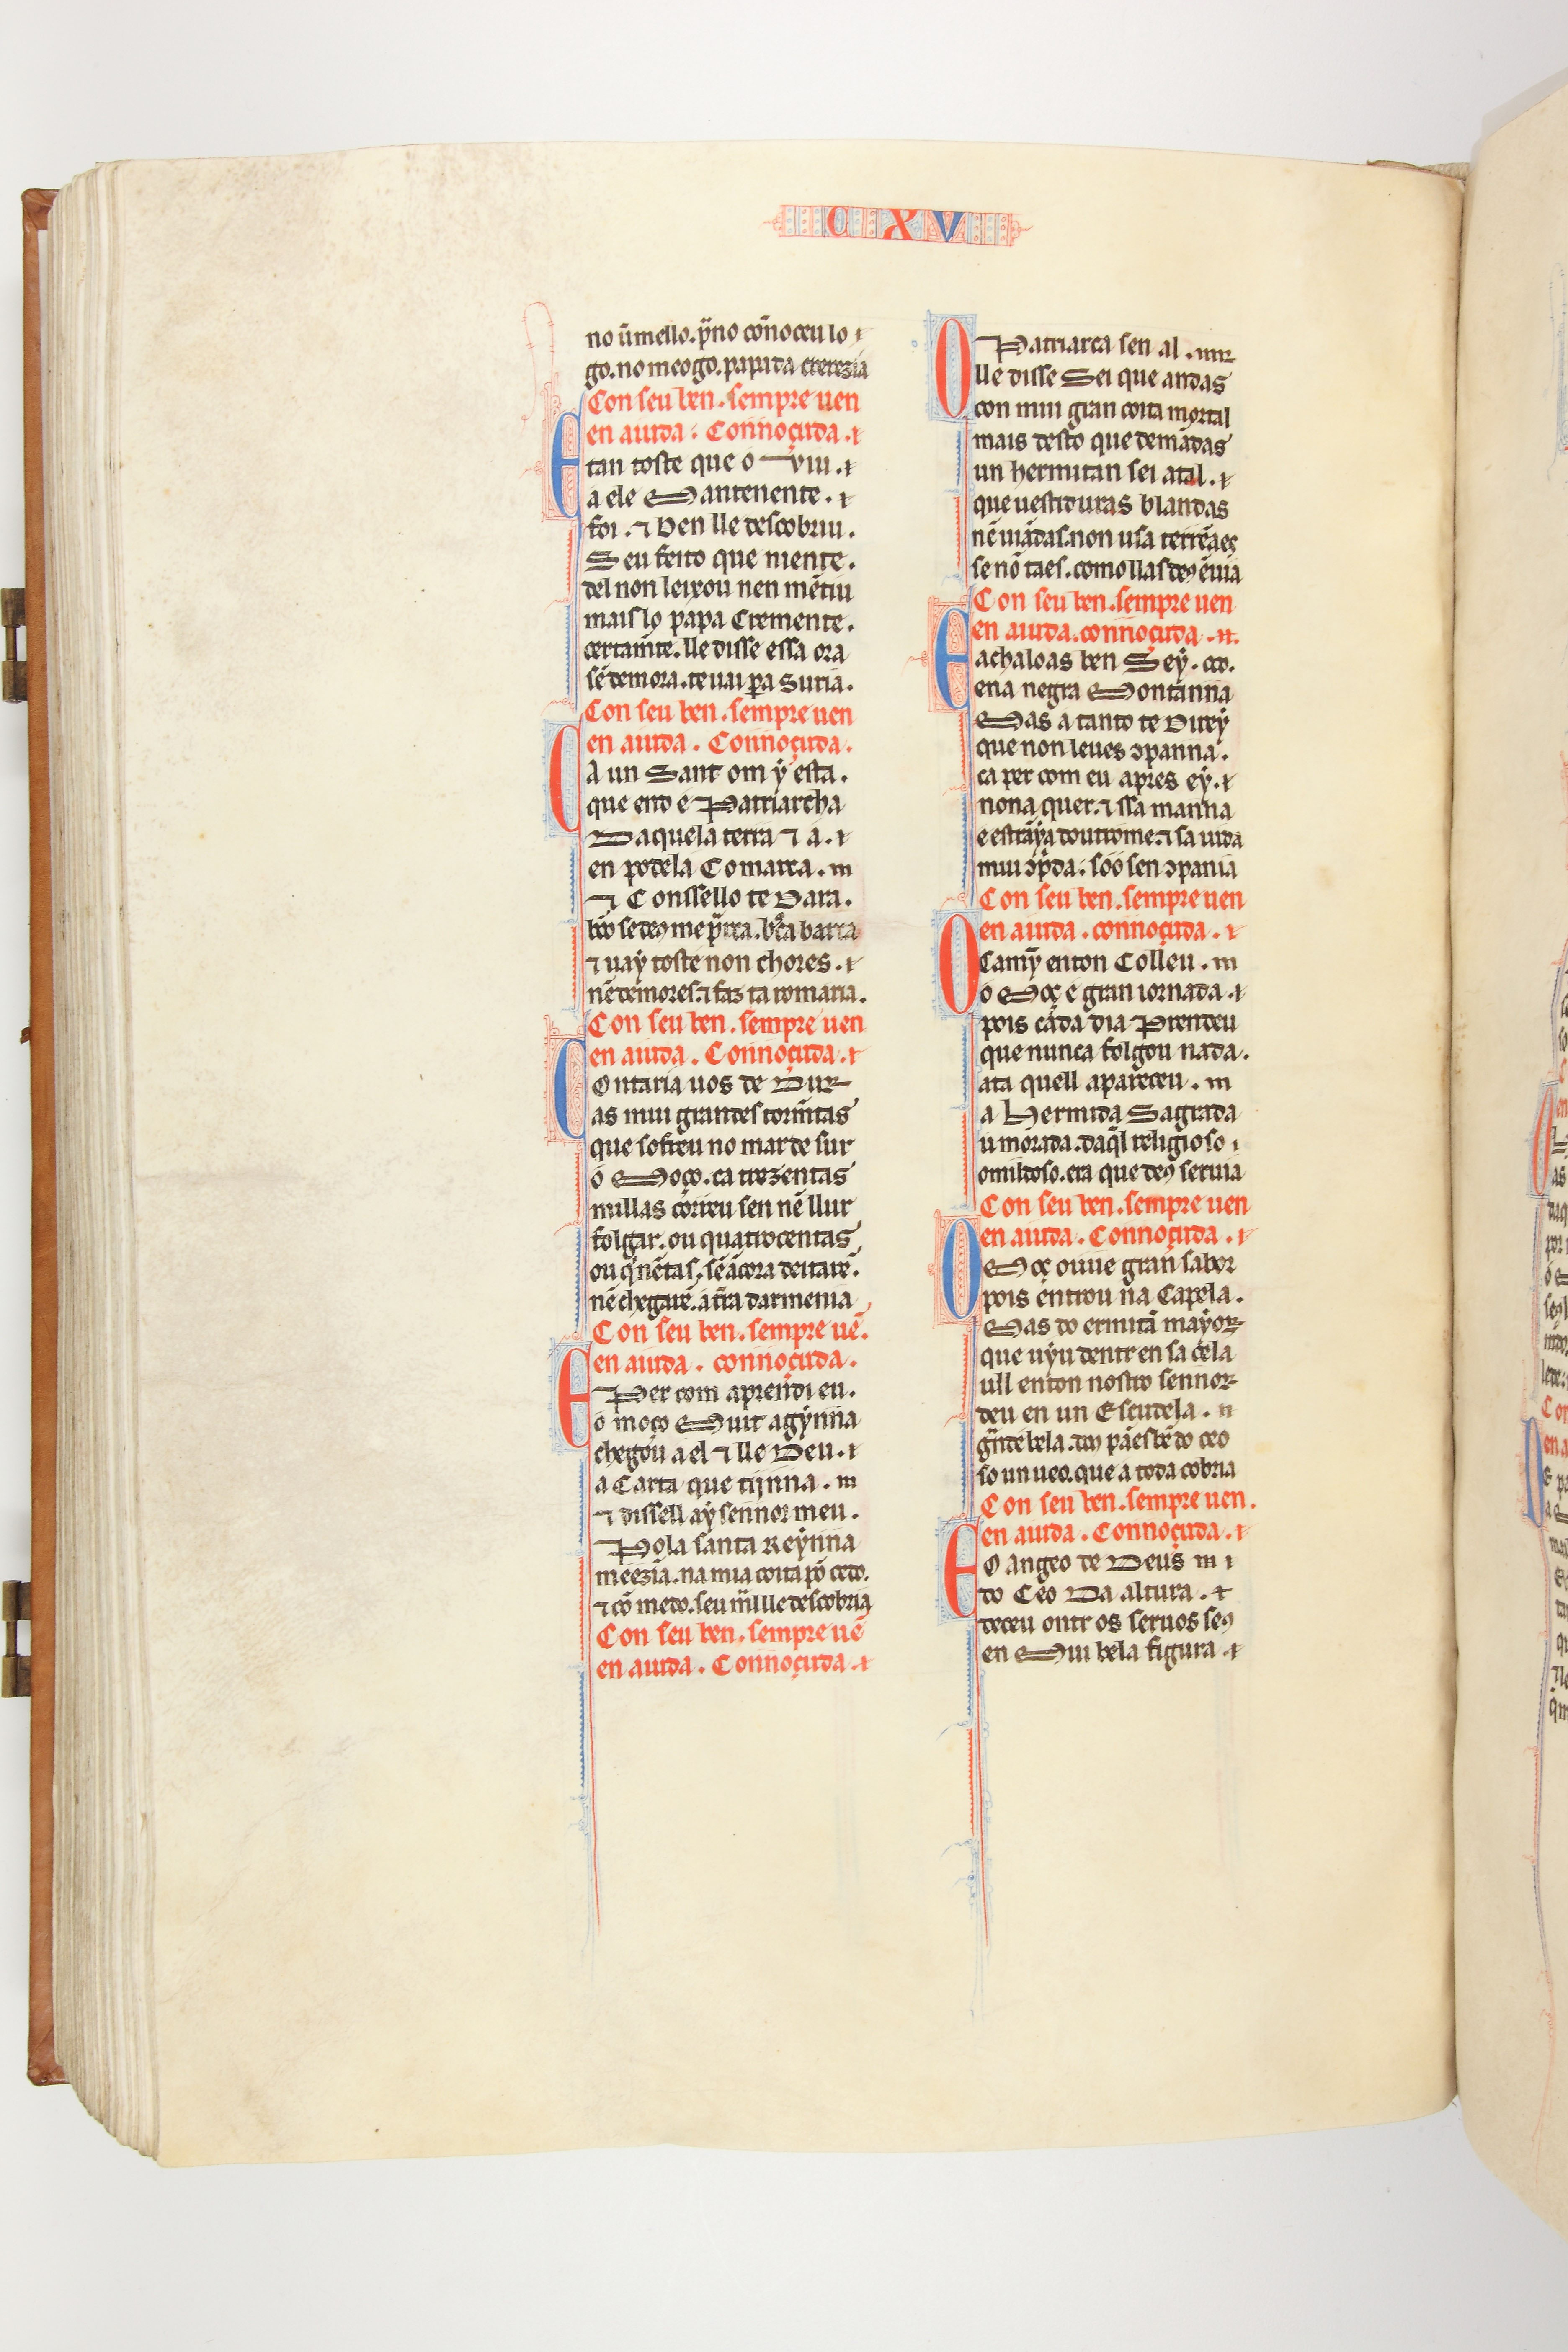 C X V
no ũmello. p̃no con̄noceu lo
go. no meogo. papa da crerezia
Con seu ben. sempre uen
en aiuda. Connoçuda.
E tan toste que o viu.
a ele Mantenente.
foi. ⁊ Ben lle descobriu.
Seu feito que niente.
del non leixou nen mẽtiu
mais lo papa Cremente.
certam̃te. lle disse essa ora
sẽ demora. te uai pa Suria.
Con seu ben. sempre uen
en aiuda. Connoçuda.
Ca un Sant om ẏ esta.
que erd e Patriarcha
Daquela terra ⁊ a.
en poдela Comarca.
⁊ Conssello te Dara.
se deꝯ me
⁊ uaẏ toste non chores.
nẽ demores. ⁊ faz ta romaria.
Con seu ben. sempre uen
en aiuda. Connoçuda.
Contaria uos de Dur
as mui grandes torm̃tas
que sofreu no mar de sur
o Moço. ca trezentas
millas correu sen nẽ llur
folgar. ou quatrocentas
ou q̃nẽtas, sẽ ãcora deitarẽ.
nẽ chegarẽ. a tr̃a darmenia
Con seu ben. sempre uẽ.
en aiuda. connoçuda.
E Per com aprendi eu.
o moço Muit agỹnna
chegou a el ⁊ lle Deu.
a Carta que tijnna.
⁊ dissell aẏ sennor meu.
Pola santa Reẏnna
meezia. na mia coita põ cedo.
⁊ cõ medo. seu m̃l lle descobria
Con seu ben. sempre uẽ
en aiuda. Connoçuda.
O Patriarca sen al.
lle disse Sei que andas
con mui gran coita mortal
mais desto que demãdas
un hermitan sei atal.
que uestiduras blandas
nẽ uiãdas. non usa terrẽaes
se nõ taes. como llas deꝯ ẽuia
Con seu ben. sempre uen
en aiuda. connoçuda.
E achaloas ben Seẏ.
ena negra Montanna
Mas a tanto te Direẏ
que non leues ꝯpanna.
ca per com eu apres eẏ.
nona quer. ⁊ ssa manna
e estrãya doutrome. ⁊ sa uida
mui ꝯp̃da. sóó sen ꝯpania
Con seu ben. sempre uen
en aiuda. connoçuda.
O Camỹ enton Colleu.
o Moç e gran iornada.
pois cada dia Prendeu
que nunca folgou nada.
ata quell apareceu.
a Hermida Sagrada
u morada. daq̃l religioso
omildoso. era que deꝯ seruia
Con seu ben. sempre uen
en aiuda. Connoçuda.
O Moç ouue gran sabor
pois entrou na Capela.
Mas do ermitã mayor
que uẏu dentr en sa cela
ull enton nostro sennor
deu en un Escudela.
bela. doꝯ pães do ceo
so un ueo. que a toda cobria
Con seu ben. sempre uen.
en aiuda. Connoçuda.
E O angeo de Deus
do Ceo Da altura.
deceu ontr os seruos seꝯ
en Mui bela figura.